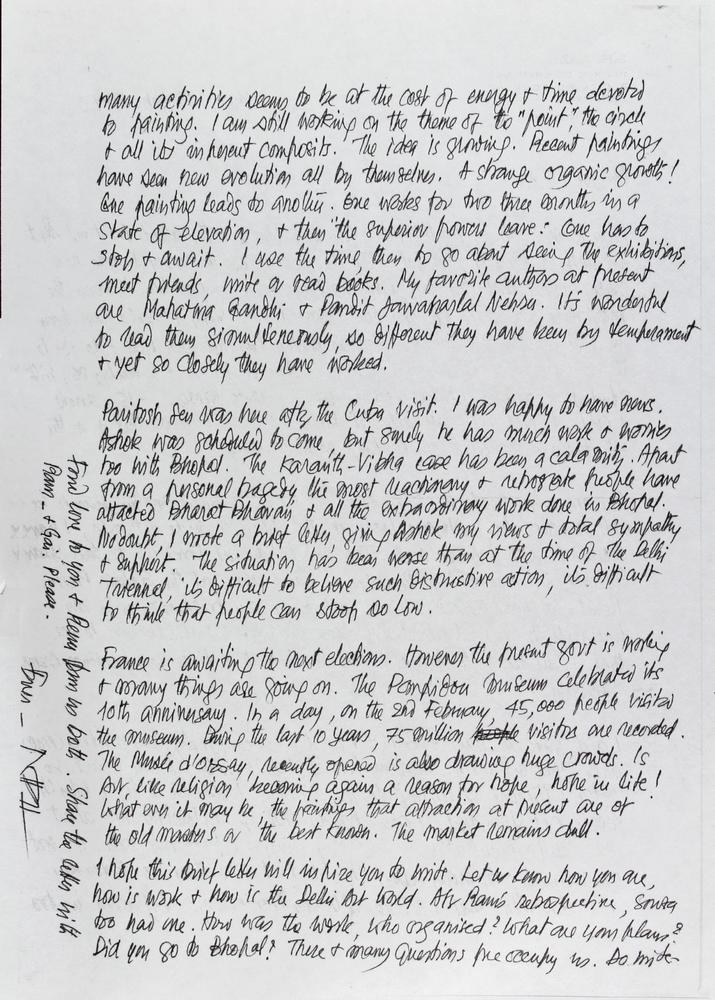 many activities seems to be at the cost of energy + time devoted
to painting. I am still working on the theme of the "point", the circle
+ all its inherent composits. The idea is growing. Recent paintings
have seen new evolution all by themselves. A strange organic growth!
One painting leads to another. One works for two three months in a
state of elevation, + then "the superior powers leave: One has to
stop + await. I use the time then to go about seeing the exhibitions,
meet friends, write or read books. My favorite authors at present
are Mahatma Gandhi + Pandit Jawaharlal Nehru. It's wonderful
to read them simulteneously, so different they have been by temperament
+ yet so closely they have worked.
Paritosh Sen was here after the Cuba visit. I was happy to have news.
Ashok was scheduled to come, but surely he has much work + worries
too with Bhopal. The Karanth-Vibha case has been a calamity. Apart
from a personal tragedy the most reactionary + retrograte people have
attacted Bharat Bhavan + all the extraordinary work done in Bhopal.
No doubt, I wrote a brief letter giving Ashok my views + total sympathy
+ support. The situation has been worse than at the time of the Delhi
Triennal, it's difficult to believe such distructive action, it's difficult
to think that people can stoop so low.
France is awaiting the next elections. However the present govt is working
+ many things are going on. The Pompidou museum celebrated its
10th anniversary. In a day, on the 2nd February 45,000 people visited
the museum. During the last 10 years, 75 million people visitors are recorded.
The Musée d'Orsay, recently opened is also drawing huge crowds. Is
Art like religion becoming again a reason for hope, hope in life!
What ever it may be, the paintings that attraction at present are of
the old masters or the best known. The market remains dull.
I hope this brief letter will inspire you to write. Let us know how you are,
how is work + how is the Delhi Art World. Afr Ram's retrospective, Souza
too had one. How was the work, who organised? What are your plans?
Did you go to Bhopal? These + many questions pre occupy us. Do write-
Fond love to you + Renu from us both. Share the letter with
Ram - + Gai. Please.